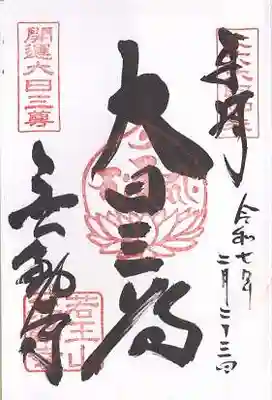 奉拝
令和七年
二月二十三日
大日三尊
開運大日三尊
無動寺
若王山